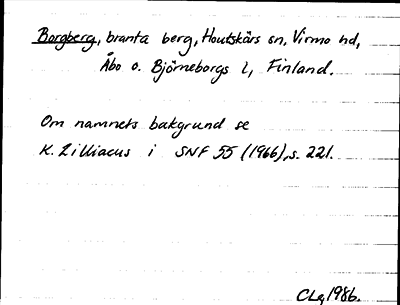 Borgberg, branta berg, Houtskärs sn, Virmo hd,
Åbo o. Björneborgs l, Finland.
Om namnets bakgrund se
K. Zilliacus i SNF 55 (1966), s. 221.
CLg 1986.